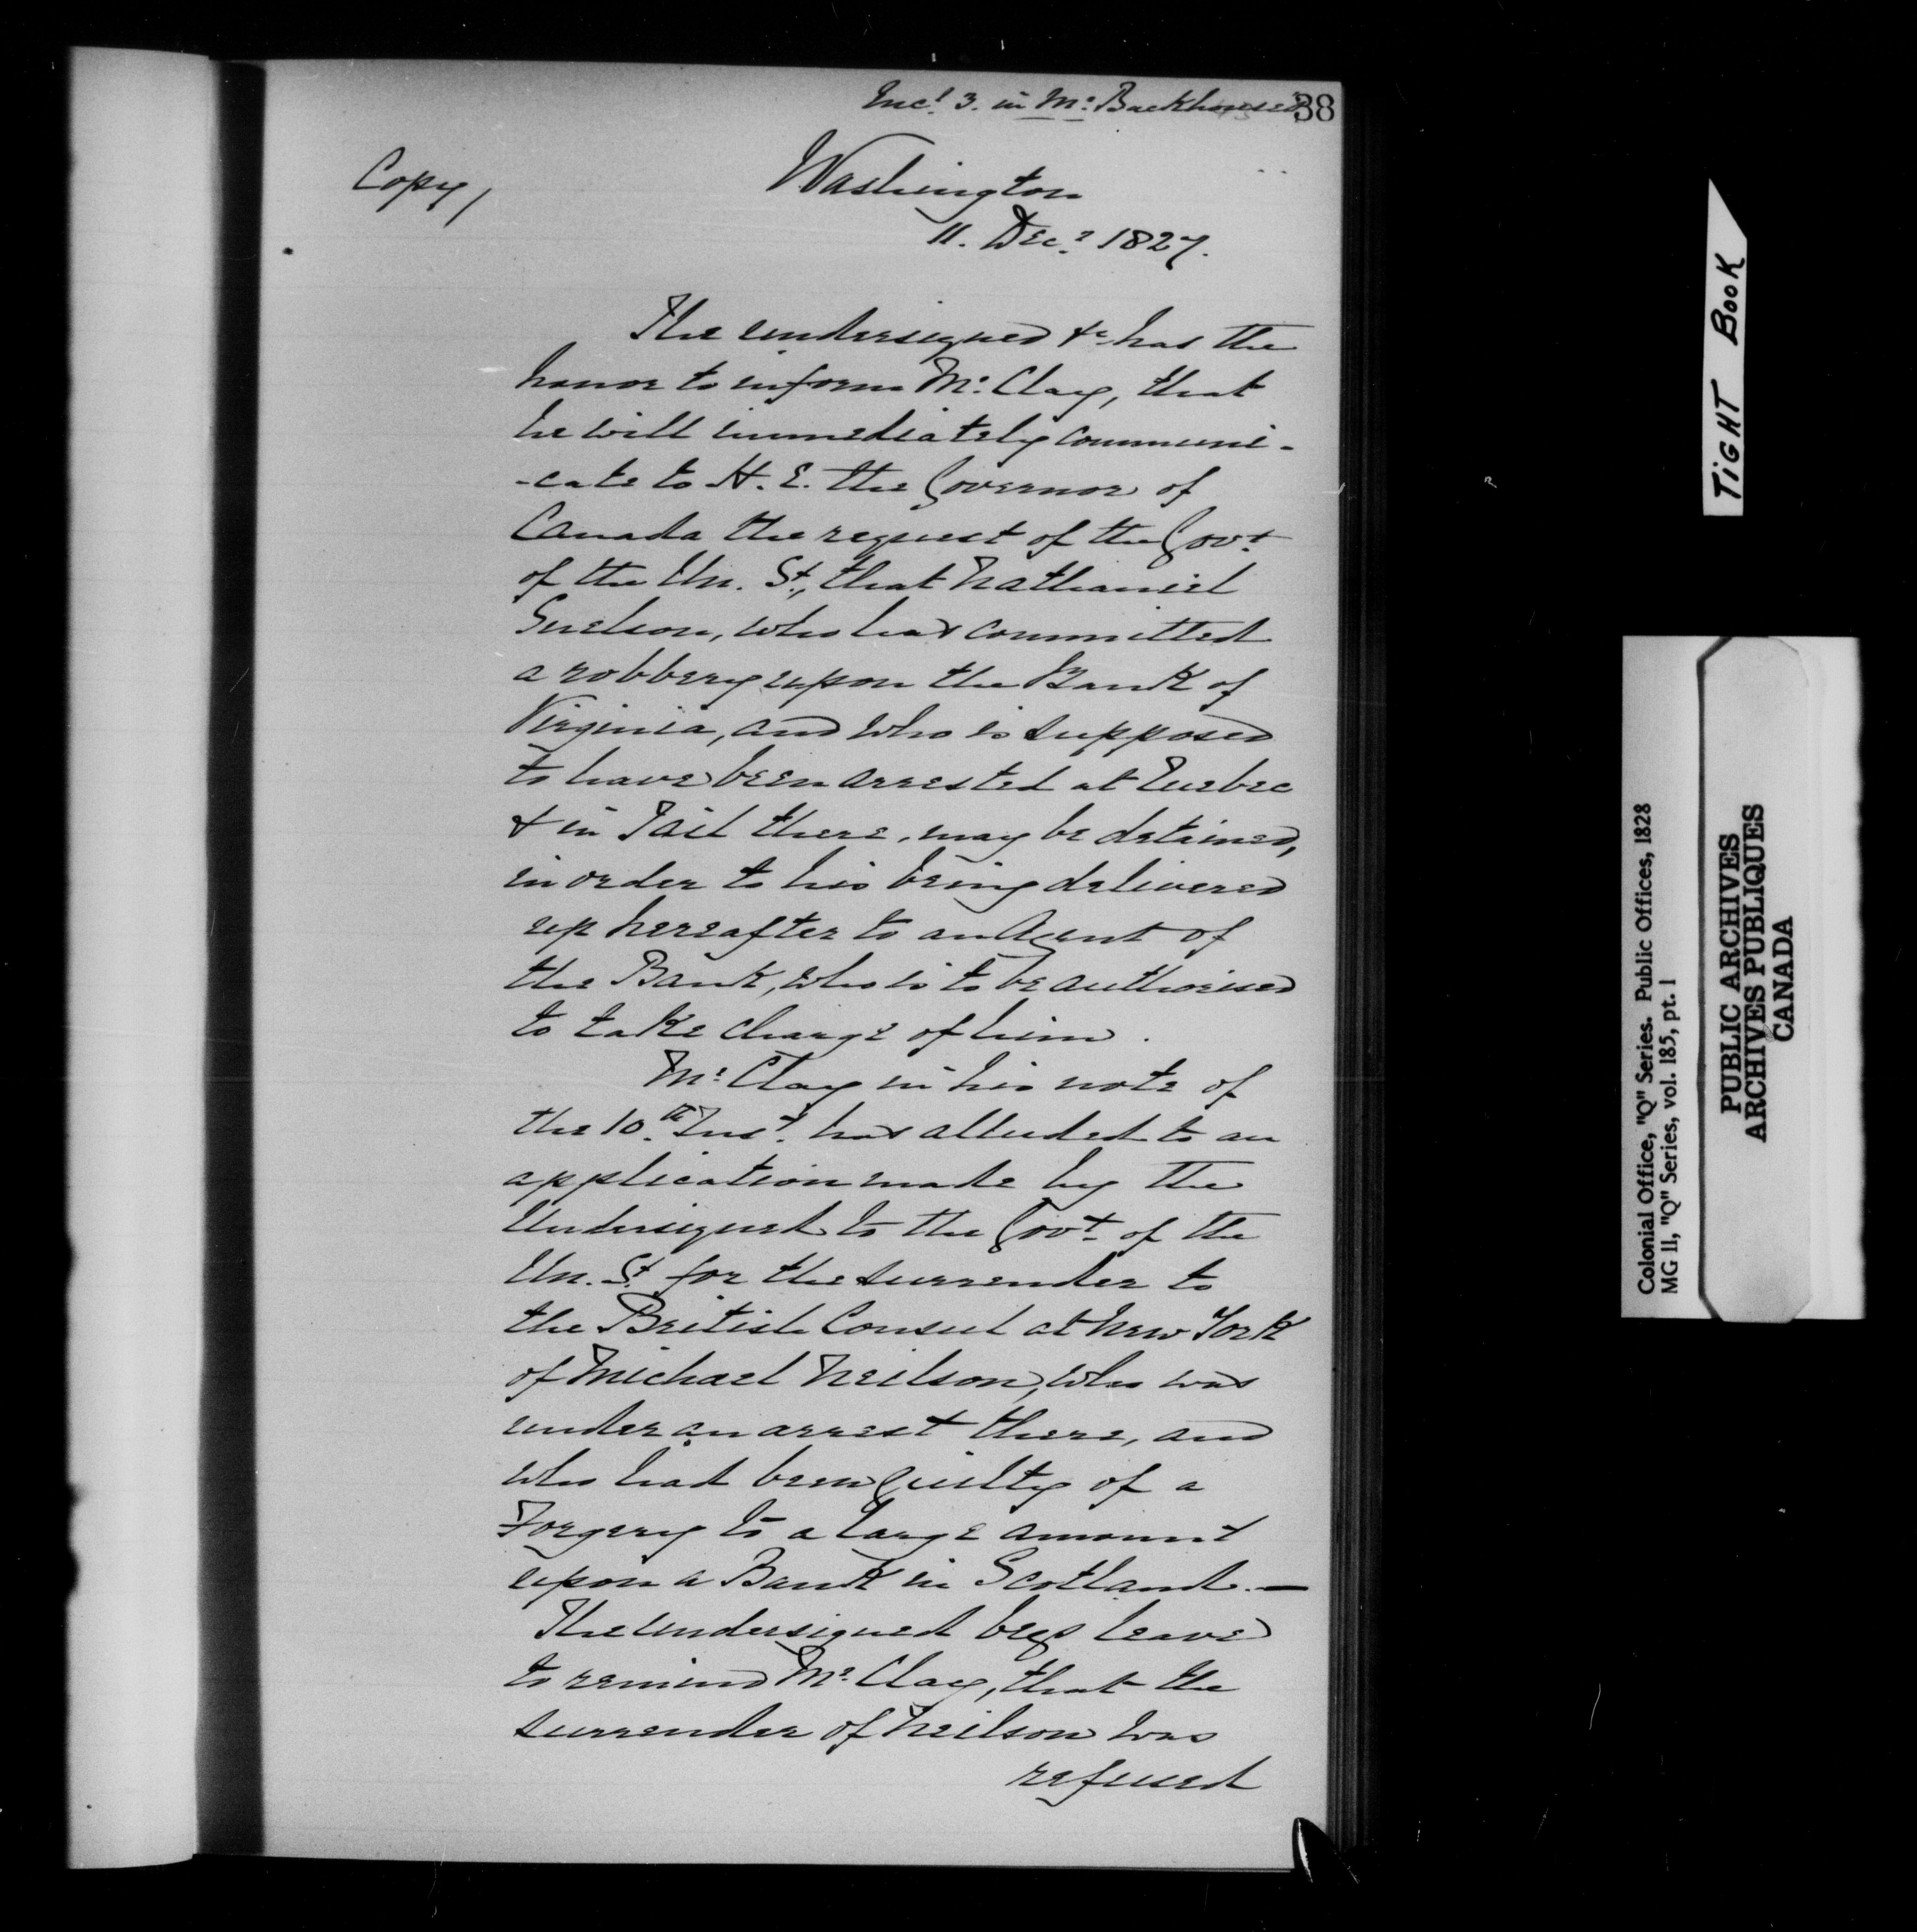 Incl. 3. in Mr. Backhouse's
38
Copy/
Washington
11. Decr. 1827.
The undersigned &c has the
honor to inform Mr. Clay, that
he will immediately communi-
-cate to H. E. the Governor of
Canada the request of the Govt.
of the Un. St., that Nathaniel
Snelson, who has committed
a robbery upon the Bank of
Virginia, and who is supposed
to have been arrested at Quebec
& in Jail there, may be detained,
in order to his being delivered
up hereafter to an Agent of
the Bank, who is to be authorised
to take charge of him.
Mr. Clay in his note of
the 10.th Inst. has alluded to an
application made by the
Undersigned to the Govt. of the
Un. St. for the surrender to
the British Consul at New York
of Michael Neilson, who was
under an arrest there, and
who had been guilty of a
Forgery to a large amount
upon a Bank in Scotland. —
The undersigned begs leave
to remind Mr. Clay, that the
surrender of Neilson was
refused
TIGHT BOOK
Colonial Office, "Q" Series. Public Offices, 1828
MG 11, "Q" Series, vol. 185, pt. 1
PUBLIC ARCHIVES
ARCHIVES PUBLIQUES
CANADA